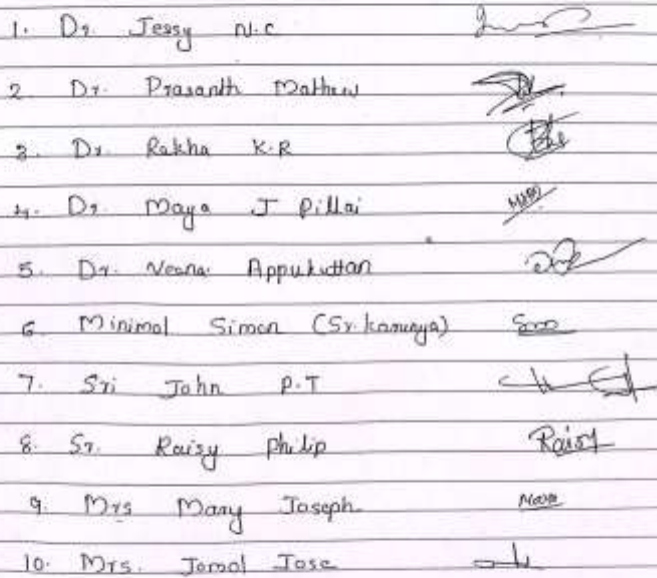 1. Dr. Jessy N.C
2. Dr. Prasanth Mathew
3. Dr. Rakha K.R
4. Dr. Maya J Pillai
5. Dr. Veena Appukuttan
6 Minimol Simon (Sr. Karunya)
7. Sri John P.T
8. Sr. Raisy Philip Raisy
9. Mrs Mary Joseph
10. Mrs. Jomol Jose